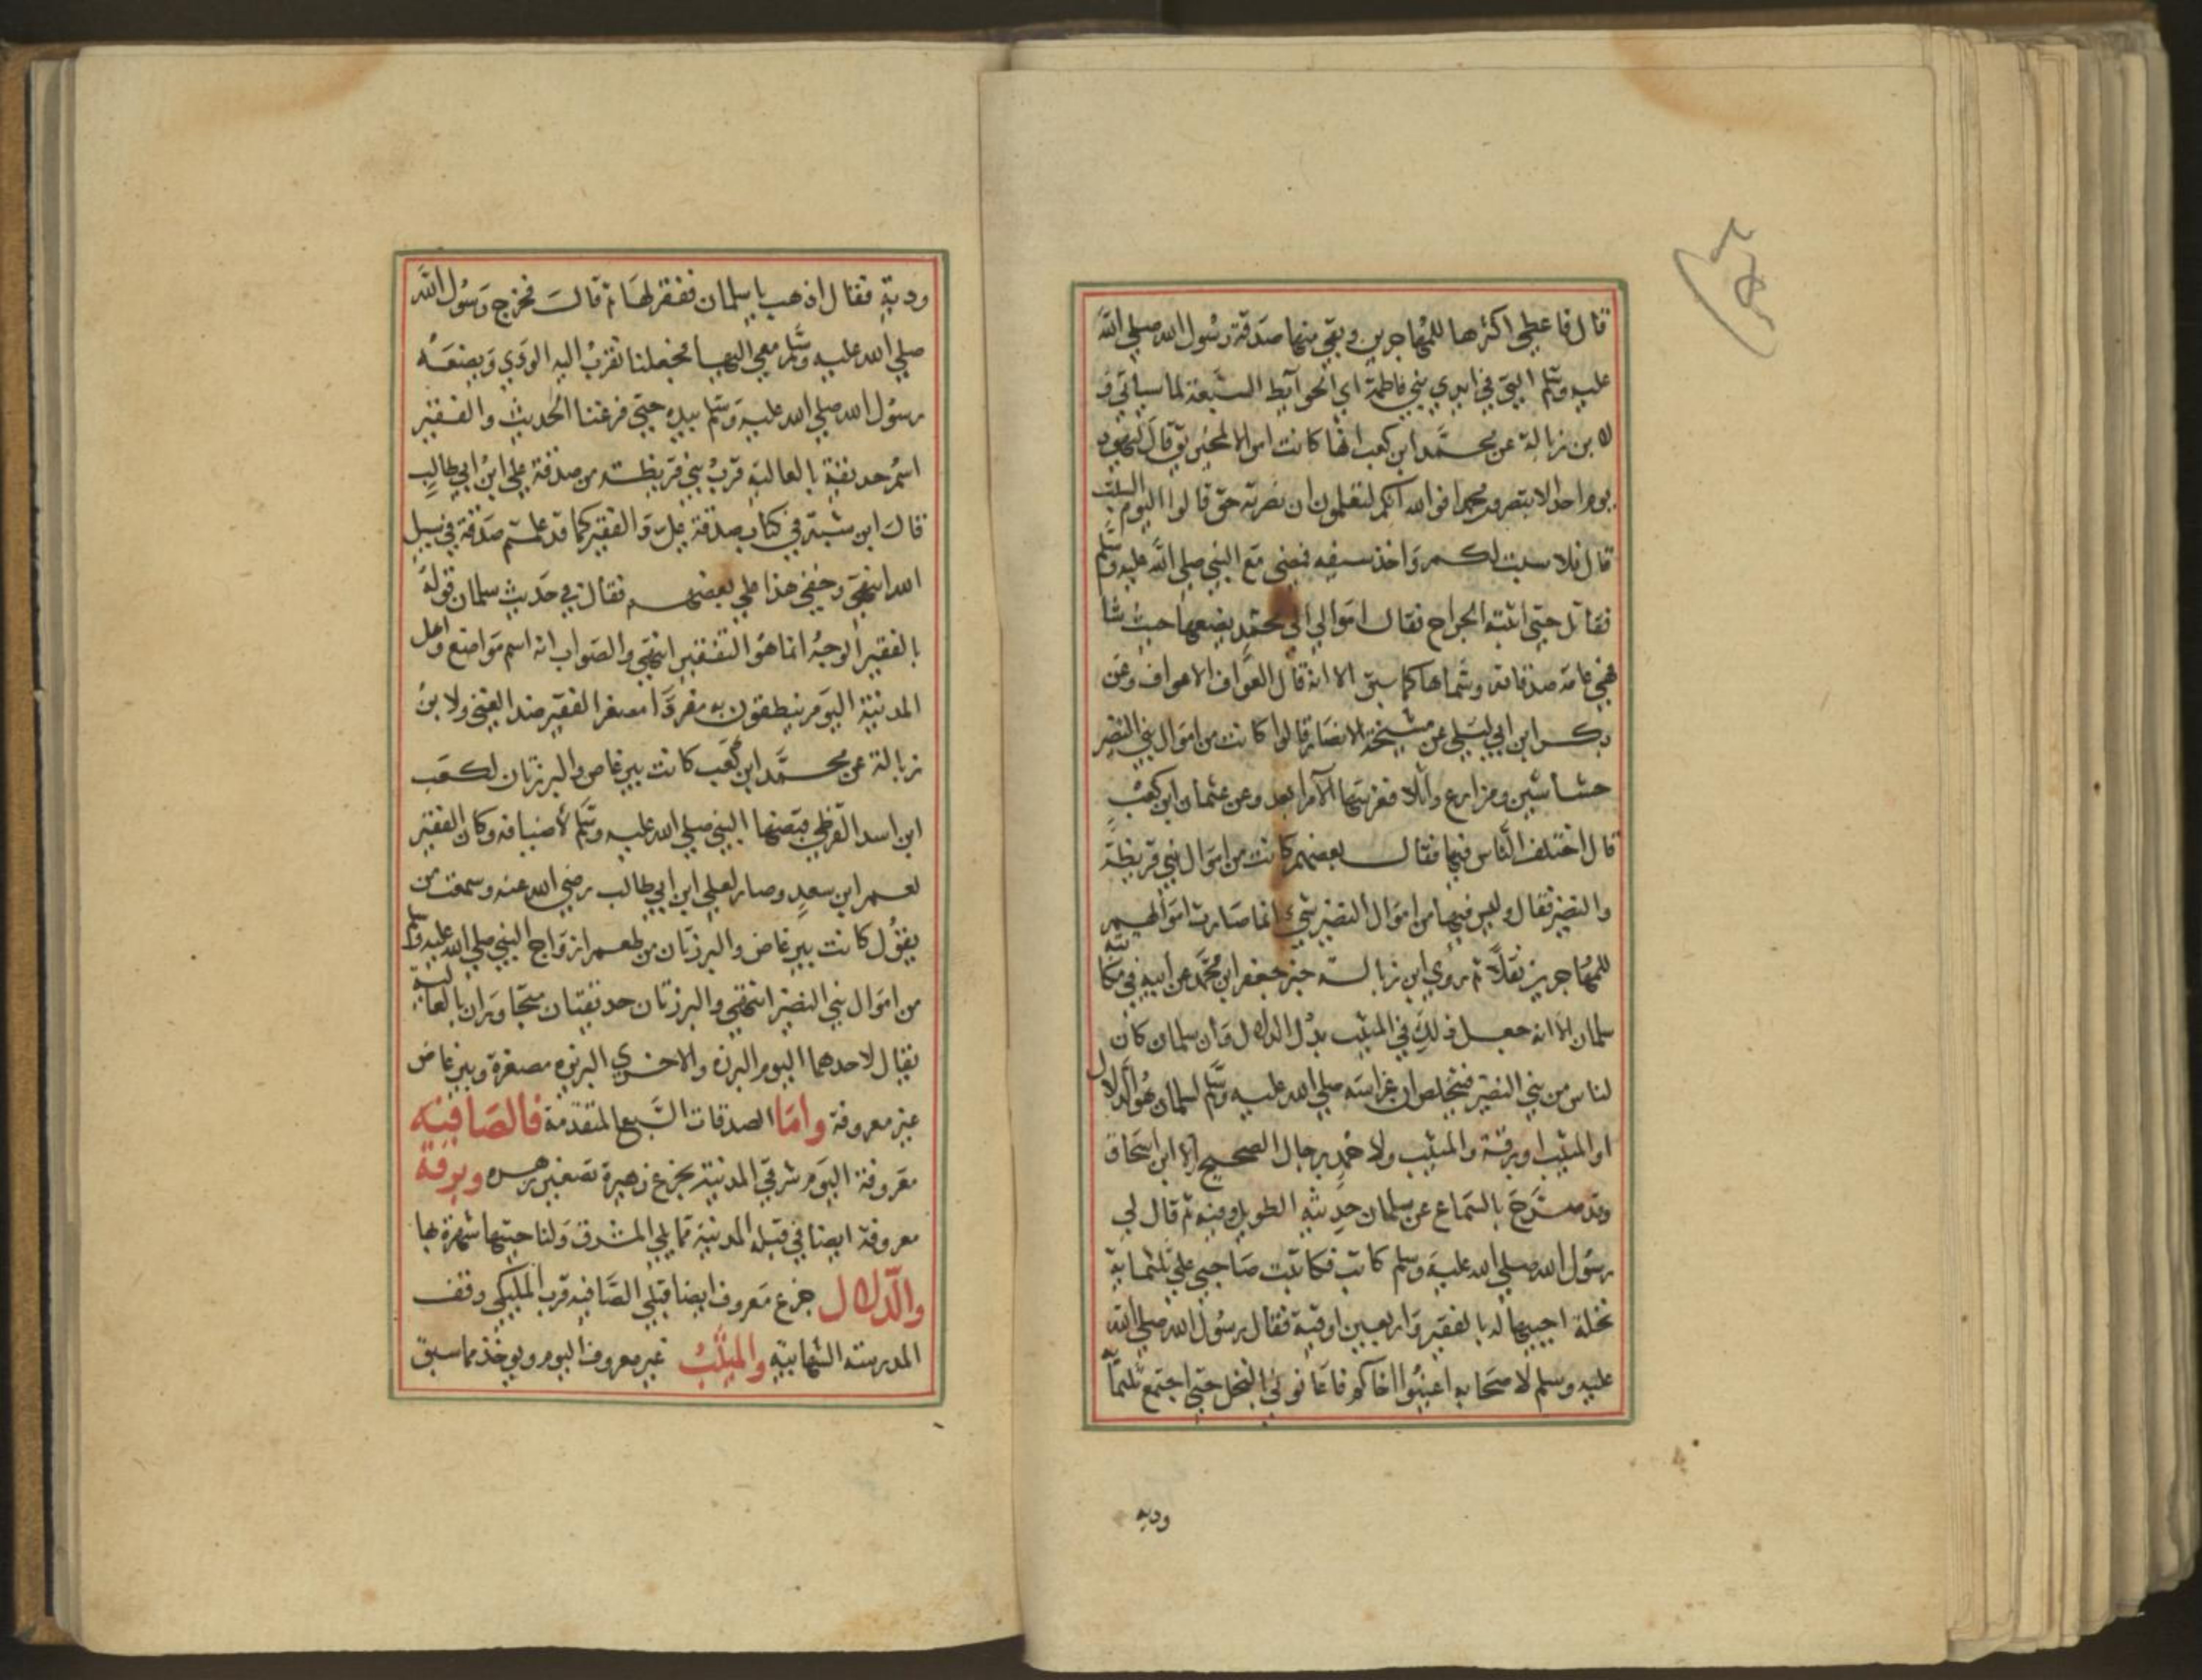 قال فاعطي اكثرها للمهاجرين وبقي منها صدقة رسول الله صلي الله
عليه وسلم التي في ايدي بني فاطمة اي الحوايط السبعة لما سياتي و
لابن زبالة عن محمد ابن كعب انها كانت اموالا لمخيريق قال ليهود
يوم احد الا تنصرون محمدا فوالله انكم لتعلمون ان نصرته حق قالوا اليوم السبت
قال فلا سبت لكم واخذ سيفه فمضي مع النبي صلي الله عليه وسلم
فقاتل حتي اثبته الجراح فقال اموالي الي محمد يضعها حيث شا
فهي عامة صدقاته وسماها كما سبق الا انه قال العواف الاعواف وعن
بكر ابن ابي ليلي عن مشيخة الانصار قالوا كانت من اموال بني النضير
حشاشين ومزارع وابلا فغرسها الامرا بعد وعن عثمان ابن كعب
قال اختلف الناس فيها فقال بعضهم كانت من اموال بني قريظة
والنضير فقال وليس فيها من اموال النضير شيء انما صارت اموالهم
للمهاجرين نفلا ثم روي ابن زبالة خبر جعفر ابن محمد عن ابيه في مكاتبة
سلمان الا انه جعل ذلك في الميثب بدل الدلال وان سلمان كان
لناس من بني النضير فتخلص ان غراسته صلي الله عليه وسلم لسلمان هو الدلال
او الميثب او برقة والميثب ولاحمد برجال الصحيح الا ابن اسحاق
وقد صرح بالسماع عن سلمان حديثه الطويل وفيه ثم قال لي
رسول الله صلي الله عليه وسلم كاتب فكاتبت صاحبي علي ثلثماية
نخلة احييها له بالفقير واربعين اوقية فقال رسول الله صلي الله
عليه وسلم لاصحابه اعينوا اخاكم فاعانوني بالنخل حتي اجتمع ثلثماية
ودية
ودية فقال اذهب يا سلمان ففقر لها ثم قالت فخرج رسول الله
صلي الله عليه وسلم معي اليها فجعلنا نقرب اليه الودي ويضعه
رسول الله صلي الله عليه وسلم بيده حتي فرغنا الحديث والفقير
اسم حديقة بالعالية قرب بني قريظة من صدقة علي ابن ابي طالب
قال ابن شبة في كتاب صدقة علي والفقير كما قد علمتم صدقة في سبيل
الله انتهي وخفي هذا علي بعضهم فقال في حديث سلمان قوله
بالفقير الوجه انما هو التفقير انتهي والصواب انه اسم مواضع واهل
المدينة اليوم ينطقون به مفردا مصغر الفقير ضد الغني ولابن
زبالة عن محمد ابن كعب كانت بير غاض والبرزتان لكعب
ابن اسد القرظي قبضها النبي صلي الله عليه وسلم لاضيافه وكان الفقير
لعمر ابن سعد وصار لعلي ابن ابي طالب رضي الله عنه وسمعت من
يقول كانت بير غاض والبرزتان من طعم ازواج النبي صلي الله عليه وسلم
من اموال بني النضير انتهي والبرزتان حديقتان متجاوران بالعالية
يقال لاحدهما اليوم البرزه والاخري البريزه مصغرة وبير غاض
غير معروفة واما الصدقات السبع المتقدمة فالصافيه
معروفة اليوم شرقي المدينة بجزع زهيرة تصغير زهره وبرقة
معروفة ايضا في قبلة المدينة مما يلي المشرق ولناحيتها شهرة بها
والدلال جزع معروف ايضا قبلي الصافيه قرب المليكي وقف
المدرسة الشهابية والميثب غير معروف اليوم ويوخذ مما سبق